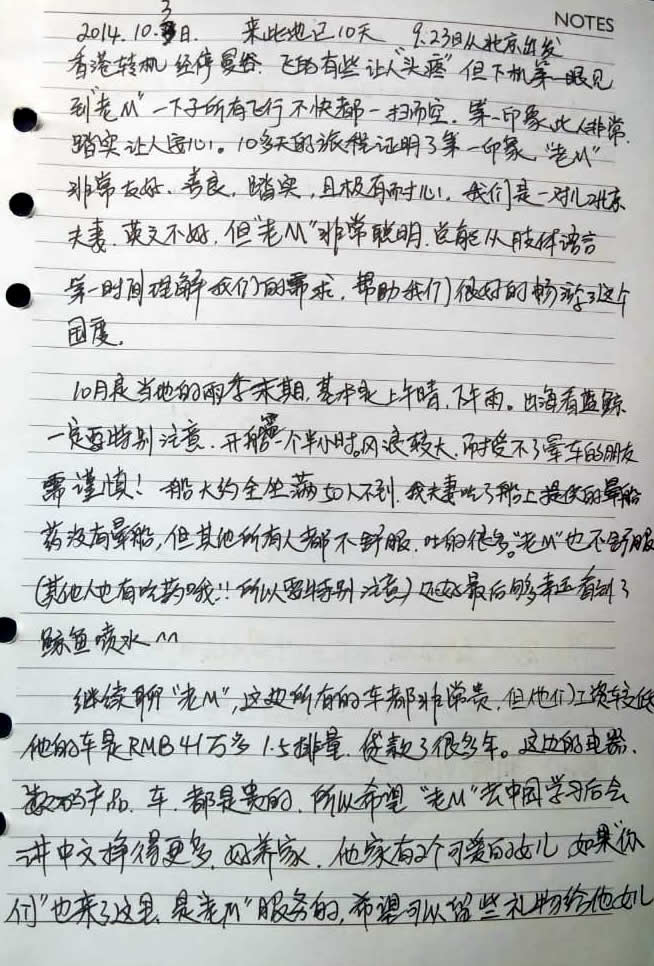 NOTES
2014.10.3日. 来此地已10天 9.23日从北京出发
香港转机 经停曼谷. 飞的有些让人"头疼" 但下机第一眼见
到"老M" 一下子所有飞行不快都一扫而空. 第一印象此人非常
踏实让人安心!. 10多天的旅程证明了第一印象 "老M"
非常友好、善良, 踏实, 且极有耐心!. 我们是一对儿北京
夫妻. 英文不好, 但"老M"非常聪明. 总能从肢体语言
第一时间理解我们的需求, 帮助我们很好的畅游了这个
国度.
10月是当地的雨季末期, 基本是上午晴, 下午雨。出海看蓝鲸
一定要特别注意. 开船需一个半小时。风浪较大. 耐受不了晕车的朋友
需谨慎! 船大约全坐满 50人不到. 我夫妻吃了船上提供的晕船
药没有晕船, 但其他所有人都不舒服. 吐的很多。"老M"也不舒服
(其他人也有吃药哦!! 所以要特别注意) 还好最后够幸运看到了
鲸鱼喷水 ^^
继续聊"老M", 这边所有的车都非常贵, 但他们工资较低
他的车是RMB 41万多 1.5排量, 贷款了很多年。这边的电器、
数码产品、车、都是贵的, 所以希望"老M"去中国学习后会
讲中文挣得更多, 好养家. 他家有2个可爱的女儿 如果"你
们"也来了这里, 是老M"服务的, 希望可以留些礼物给他女儿